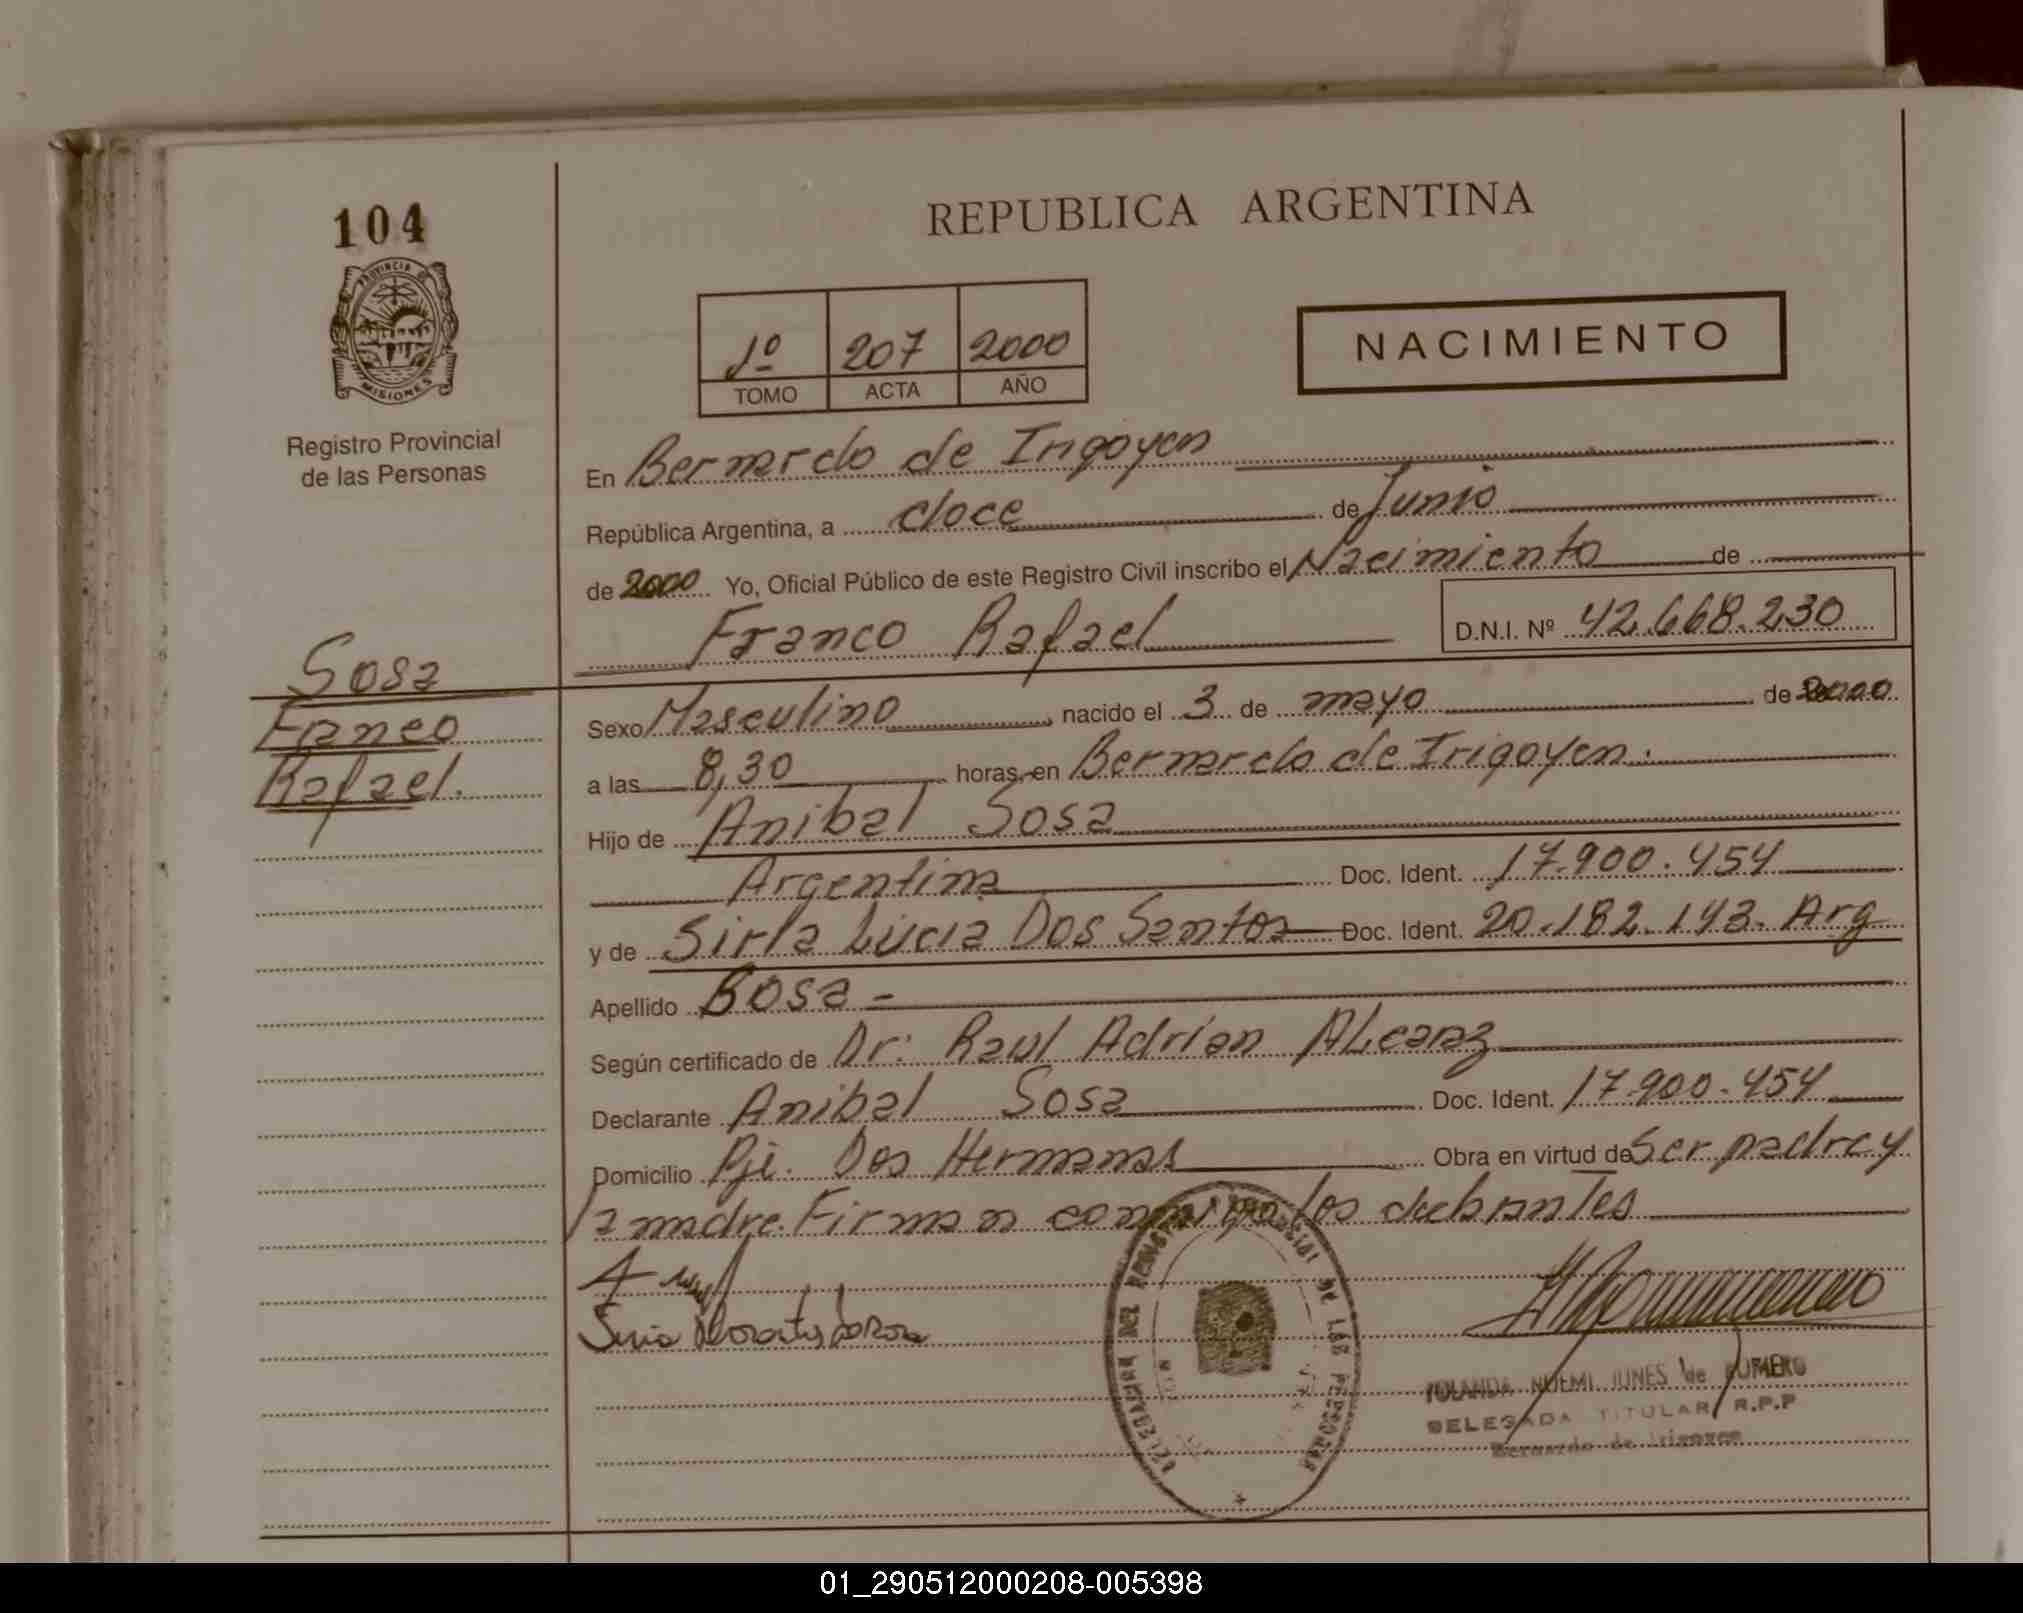 104
PROVINCIA DE
MISIONES
Registro Provincial
de las Personas
Sosa
Franco
Rafael.
REPUBLICA ARGENTINA
1º 207 2000
TOMO ACTA AÑO
NACIMIENTO
En Bernardo de Irigoyen
República Argentina, a doce de Junio
de 2000 Yo, Oficial Público de este Registro Civil inscribo el Nacimiento de
Franco Rafael D.N.I. Nº 42.668.230
Sexo Masculino, nacido el 3 de mayo de 2000
a las 8,30 horas, en Bernardo de Irigoyen.
Hijo de Anibal Sosa
Argentina Doc. Ident. 17.900.454
y de Sirla Lucia Dos Santos Doc. Ident. 20.182.143. Arg
Apellido Sosa -
Según certificado de Dr. Raul Adrian ALcaraz
Declarante Anibal Sosa Doc. Ident. 17.900.454
Domicilio Pje. Dos Hermanas Obra en virtud de Ser padre y
la madre. Firman conmigo los
DE LAS PERSONAS
YOLANDA NOEMI JUNES de ROMERO
DELEGADA TITULAR R.P.P
Bernardo de Irigoyen
01_290512000208-005398